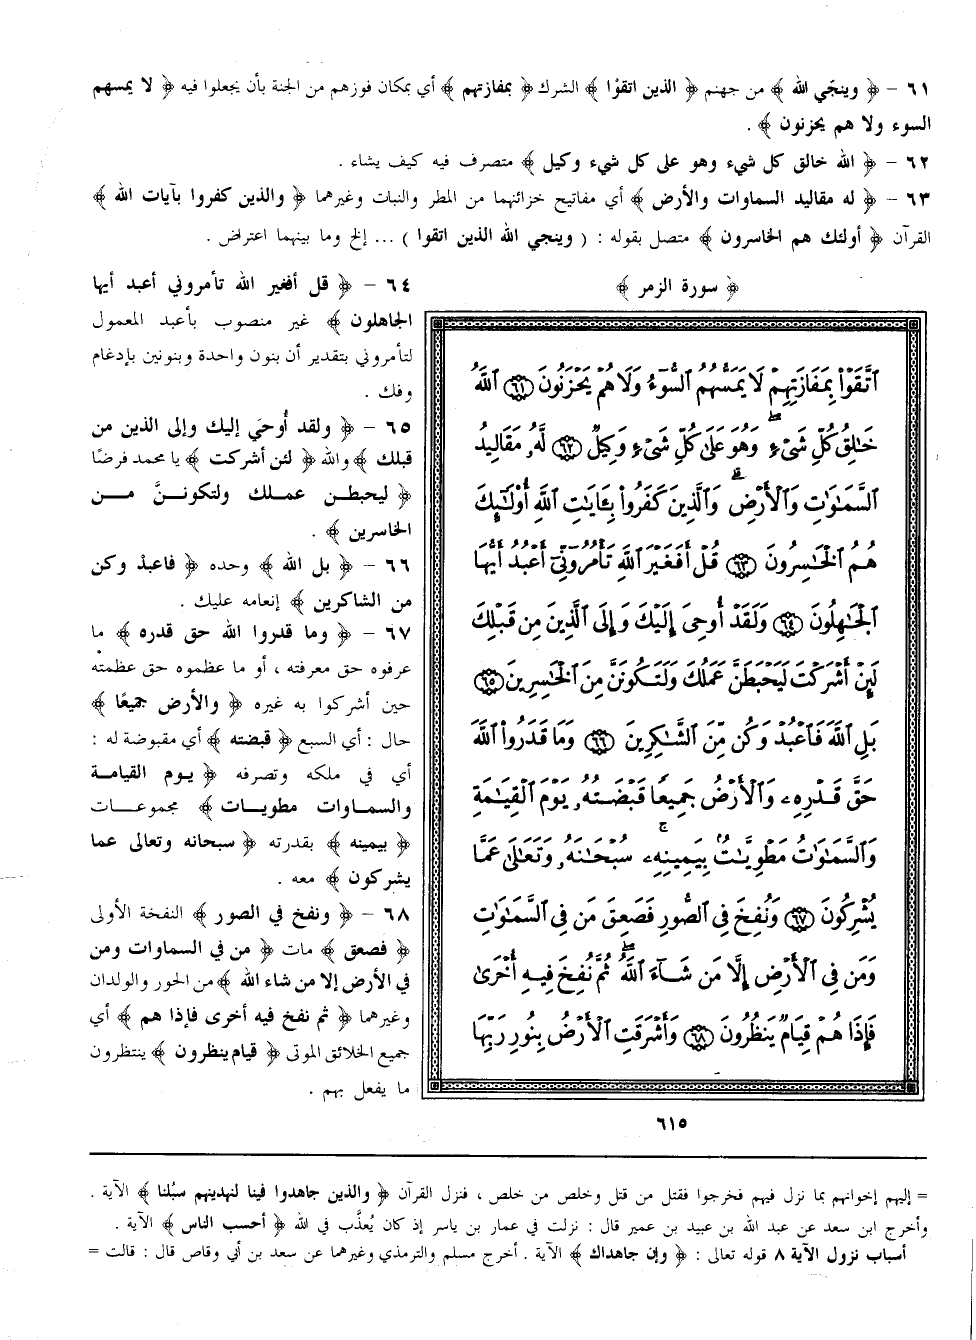 ٦١ - ﴿ وينجّي الله ﴾ من جهنم ﴿ الذين اتقوْا ﴾ الشرك ﴿ بمفازتهم ﴾ أي بمكان فوزهم من الجنة بأن يجعلوا فيه ﴿ لا يمسهم
السوء ولا هم يحزنون ﴾ .
٦٢ - ﴿ الله خالق كل شيء وهو على كل شيء وكيل ﴾ متصرف فيه كيف يشاء .
٦٣ - ﴿ له مقاليد السماوات والأرض ﴾ أي مفاتيح خزائنهما من المطر والنبات وغيرهما ﴿ والذين كفروا بآيات الله ﴾
القرآن ﴿ أولئك هم الخاسرون ﴾ متصل بقوله : ( وينجي الله الذين اتقوا ) ... إلخ وما بينهما اعتراض .
﴿ سورة الزمر ﴾
ٱتَّقَوْا۟ بِمَفَازَتِهِمْ لَا يَمَسُّهُمُ ٱلسُّوٓءُ وَلَا هُمْ يَحْزَنُونَ ٦١ ٱللَّهُ
خَـٰلِقُ كُلِّ شَىْءٍ ۖ وَهُوَ عَلَىٰ كُلِّ شَىْءٍ وَكِيلٌ ٦٢ لَّهُۥ مَقَالِيدُ
ٱلسَّمَـٰوَٰتِ وَٱلْأَرْضِ ۗ وَٱلَّذِينَ كَفَرُوا۟ بِـَٔايَـٰتِ ٱللَّهِ أُو۟لَـٰٓئِكَ
هُمُ ٱلْخَـٰسِرُونَ ٦٣ قُلْ أَفَغَيْرَ ٱللَّهِ تَأْمُرُوٓنِّىٓ أَعْبُدُ أَيُّهَا
ٱلْجَـٰهِلُونَ ٦٤ وَلَقَدْ أُوحِىَ إِلَيْكَ وَإِلَى ٱلَّذِينَ مِن قَبْلِكَ
لَئِنْ أَشْرَكْتَ لَيَحْبَطَنَّ عَمَلُكَ وَلَتَكُونَنَّ مِنَ ٱلْخَـٰسِرِينَ ٦٥
بَلِ ٱللَّهَ فَٱعْبُدْ وَكُن مِّنَ ٱلشَّـٰكِرِينَ ٦٦ وَمَا قَدَرُوا۟ ٱللَّهَ
حَقَّ قَدْرِهِۦ وَٱلْأَرْضُ جَمِيعًا قَبْضَتُهُۥ يَوْمَ ٱلْقِيَـٰمَةِ
وَٱلسَّمَـٰوَٰتُ مَطْوِيَّـٰتٌۢ بِيَمِينِهِۦ ۚ سُبْحَـٰنَهُۥ وَتَعَـٰلَىٰ عَمَّا
يُشْرِكُونَ ٦٧ وَنُفِخَ فِى ٱلصُّورِ فَصَعِقَ مَن فِى ٱلسَّمَـٰوَٰتِ
وَمَن فِى ٱلْأَرْضِ إِلَّا مَن شَآءَ ٱللَّهُ ۖ ثُمَّ نُفِخَ فِيهِ أُخْرَىٰ
فَإِذَا هُمْ قِيَامٌ يَنظُرُونَ ٦٨ وَأَشْرَقَتِ ٱلْأَرْضُ بِنُورِ رَبِّهَا
٦٤ - ﴿ قل أفغير الله تأمروني أعبد أيها
الجاهلون ﴾ غير منصوب بأعبد المعمول
لتأمروني بتقدير أن بنون واحدة وبنونين بإدغام
وفك .
٦٥ - ﴿ ولقد أُوحيَ إليك وإلى الذين من
قبلك ﴾ والله ﴿ لئن أشركت ﴾ يا محمد فرضًا
﴿ ليحبطن عملك ولتكوننَّ من
الخاسرين ﴾ .
٦٦ - ﴿ بل الله ﴾ وحده ﴿ فاعبدْ وكن
من الشاكرين ﴾ إنعامه عليك .
٦٧ - ﴿ وما قدروا الله حق قدره ﴾ ما
عرفوه حق معرفته ، أو ما عظموه حق عظمته
حين أشركوا به غيره ﴿ والأرض جميعًا ﴾
حال : أي السبع ﴿ قبضته ﴾ أي مقبوضة له :
أي في ملكه وتصرفه ﴿ يوم القيامة
والسماوات مطويات ﴾ مجموعات
﴿ بيمينه ﴾ بقدرته ﴿ سبحانه وتعالى عما
يشركون ﴾ معه .
٦٨ - ﴿ ونفخ في الصور ﴾ النفخة الأولى
﴿ فصعق ﴾ مات ﴿ من في السماوات ومن
في الأرض إلا من شاء الله ﴾ من الحور والولدان
وغيرهما ﴿ ثم نفخ فيه أخرى فإذا هم ﴾ أي
جميع الخلائق الموتى ﴿ قيام ينظرون ﴾ ينتظرون
ما يفعل بهم .
٦١٥
= إليهم إخوانهم بما نزل فيهم فخرجوا فقتل من قتل وخلص من خلص ، فنزل القرآن ﴿ والذين جاهدوا فينا لنهدينهم سبُلنا ﴾ الآية .
وأخرج ابن سعد عن عبد الله بن عبيد بن عمير قال : نزلت في عمار بن ياسر إذ كان يُعذَّب في الله ﴿ أحسب الناس ﴾ الآية .
أسباب نزول الآية ٨ قوله تعالى : ﴿ وإن جاهداك ﴾ الآية . أخرج مسلم والترمذي وغيرهما عن سعد بن أبي وقاص قال : قالت =